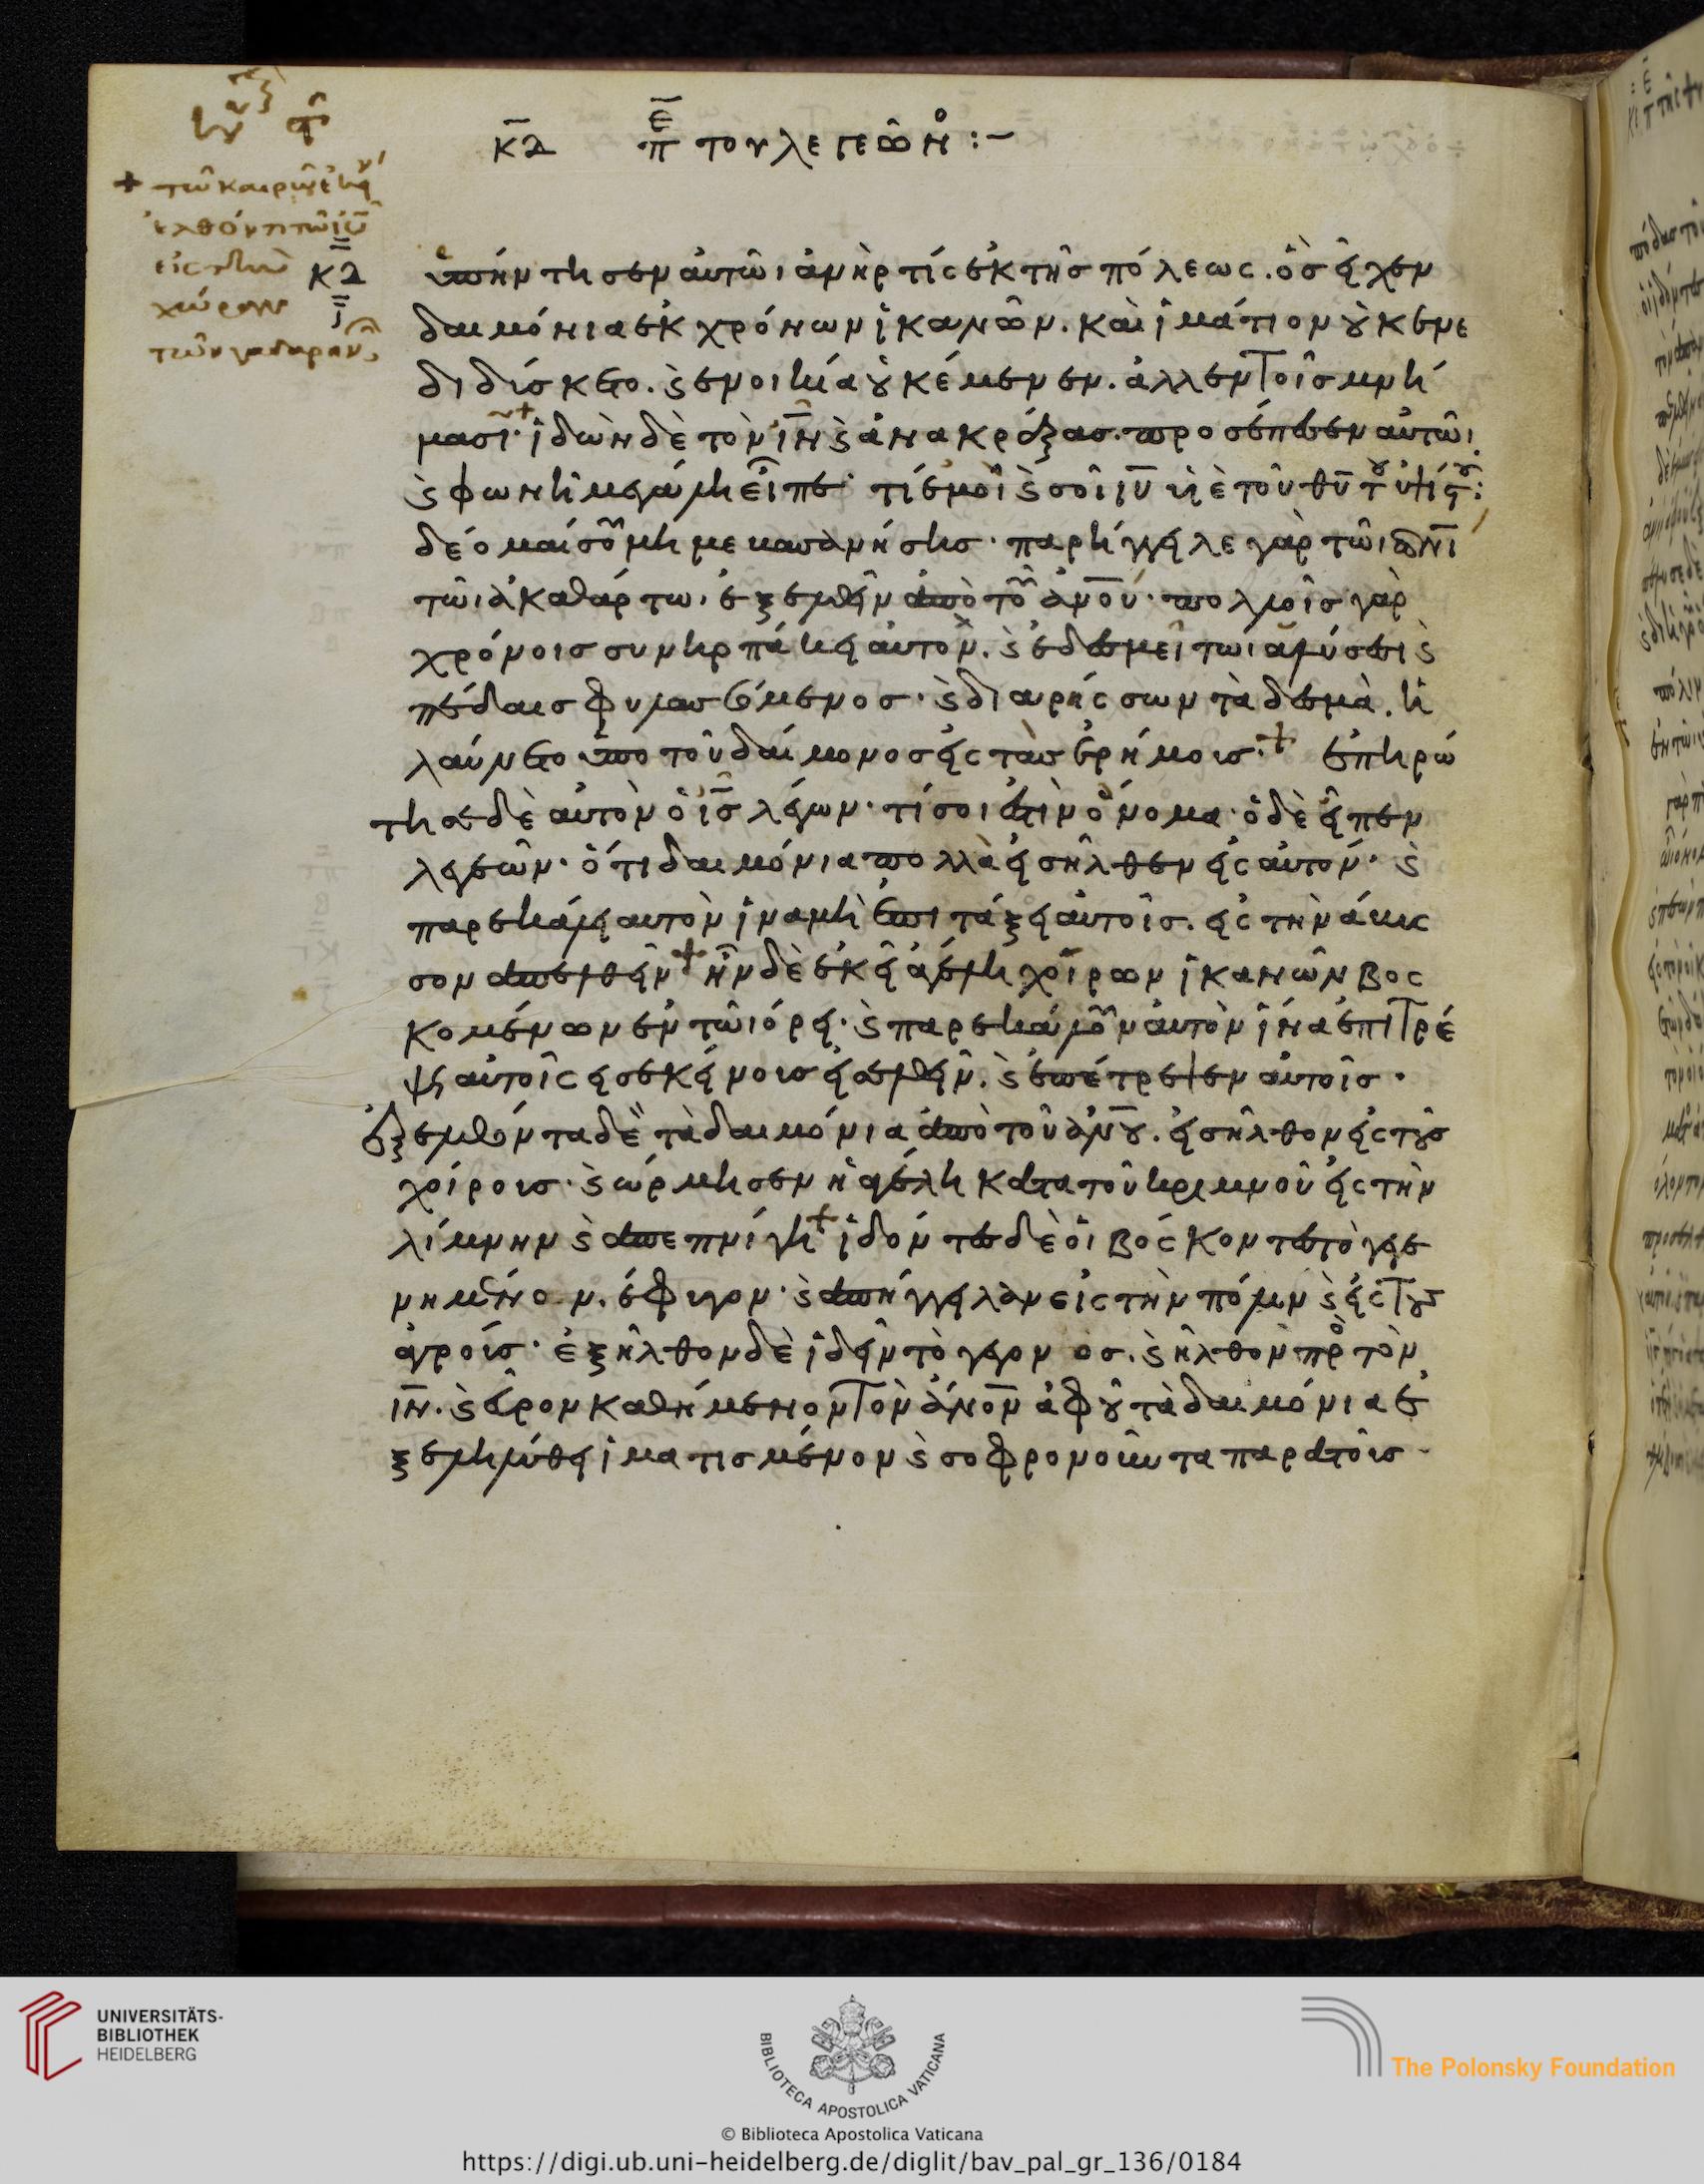 κδ περὶ τοῦ λεγεῶνος :-
+ τῶ καιρῶ ἐκείνω
ἐλθόντι τῶ ἰυ
εἰς τὴν
χώραν
τῶν γαδαρηνῶν
κδ
ὑπήντησεν αὐτῶι ἀνήρ τίς ἐκ τῆς πόλεως. ὃς εἶχεν
δαιμόνια ἐκ χρόνων ἱκανῶν. καὶ ἱμάτιον οὐκ ἐνε
διδίσκετο. καὶ ἐν οικία οὐκ ἔμενεν. ἀλλ ἐν τοῖς μνή
μασι· ἰδὼν δὲ τὸν ιν καὶ ἀνακράξας. προσέπεσεν αὐτῶι
καὶ φωνῆ μεγάλη εἶπε· τί ἐμοὶ καὶ σοὶ ιυ υἱὲ τοῦ θυ τοῦ ὑψίστου:
δέομαί σου μή με βασανήσης· παρήγγειλε γὰρ τῶι πνι
τῶι ἀκαθάρτωι ἐξελθεῖν ἀπὸ τοῦ ανου· πολλοῖς γὰρ
χρόνοις συνηρπάκει αὐτὸν. καὶ ἐδεσμεῖτω ἁλύσεσι καὶ
πέδαις φυλαττόμενος· καὶ διαρήσσων τὰ δεσμὰ. ἠ
λαύνετο ὑπο τοῦ δαίμονος εἰς τὰς ἐρήμους·+ ἐπηρώ
τησε δὲ αὐτὸν ὁ ις λέγων· τί σοι ἐστὶν ὄνομα· ὁ δὲ εἶπεν
λεγεῶν· ὅτι δαιμόνια πολλὰ εἰσῆλθεν εἰς αὐτόν· καὶ
παρεκάλει αυτὸν ἵνα μὴ ἐπιτάξει αὐτοῖς. εἰς τὴν άβυς
σον ἀπελθεῖν+ ἦν δὲ ἐκεῖ ἀγέλη χοίρων ἱκανῶν βοσ
κομένων ἐν τῶι όρει· καὶ παρεκάλουν αὐτὸν ἵνα ἐπιτρέ
ψει αὐτοῖς εἰς ἐκείνους εἰσελθεῖν. καὶ ἐπέτρεψεν αὐτοῖς·
ἐξελθόντα δὲ τὰ δαιμόνια ἀπὸ τοῦ ανου. εἰσῆλθον εἰς τοὺς
χοίρους· καὶ ὥρμησεν ἡ ἀγέλη κατα τοῦ κριμνοῦ εἰς τὴν
λίμνην καὶ ἀπεπνίγη+ ἰδόντες δὲ οἱ βόσκοντες τὸ γεγε
νημένον. ἔφυγον· καὶ ἀπήγγειλαν εἰς τὴν πόλιν καὶ εἰς τοὺς
ἀγρούς· ἐξῆλθον δὲ ἰδεῖν τὸ γεγονός. καὶ ἦλθον πρὸς τὸν
ιν. καὶ εὗρον καθήμενον τὸν ανον ἀφ οὗ τὰ δαιμόνια ἐ
ξεληλύθει ἱματισμένον καὶ σοφρονοῦντα παρα τοὺς
UNIVERSITÄTS-
BIBLIOTHEK
HEIDELBERG
BIBLIOTECA APOSTOLICA VATICANA
The Polonsky Foundation
© Biblioteca Apostolica Vaticana
https://digi.ub.uni-heidelberg.de/diglit/bav_pal_gr_136/0184